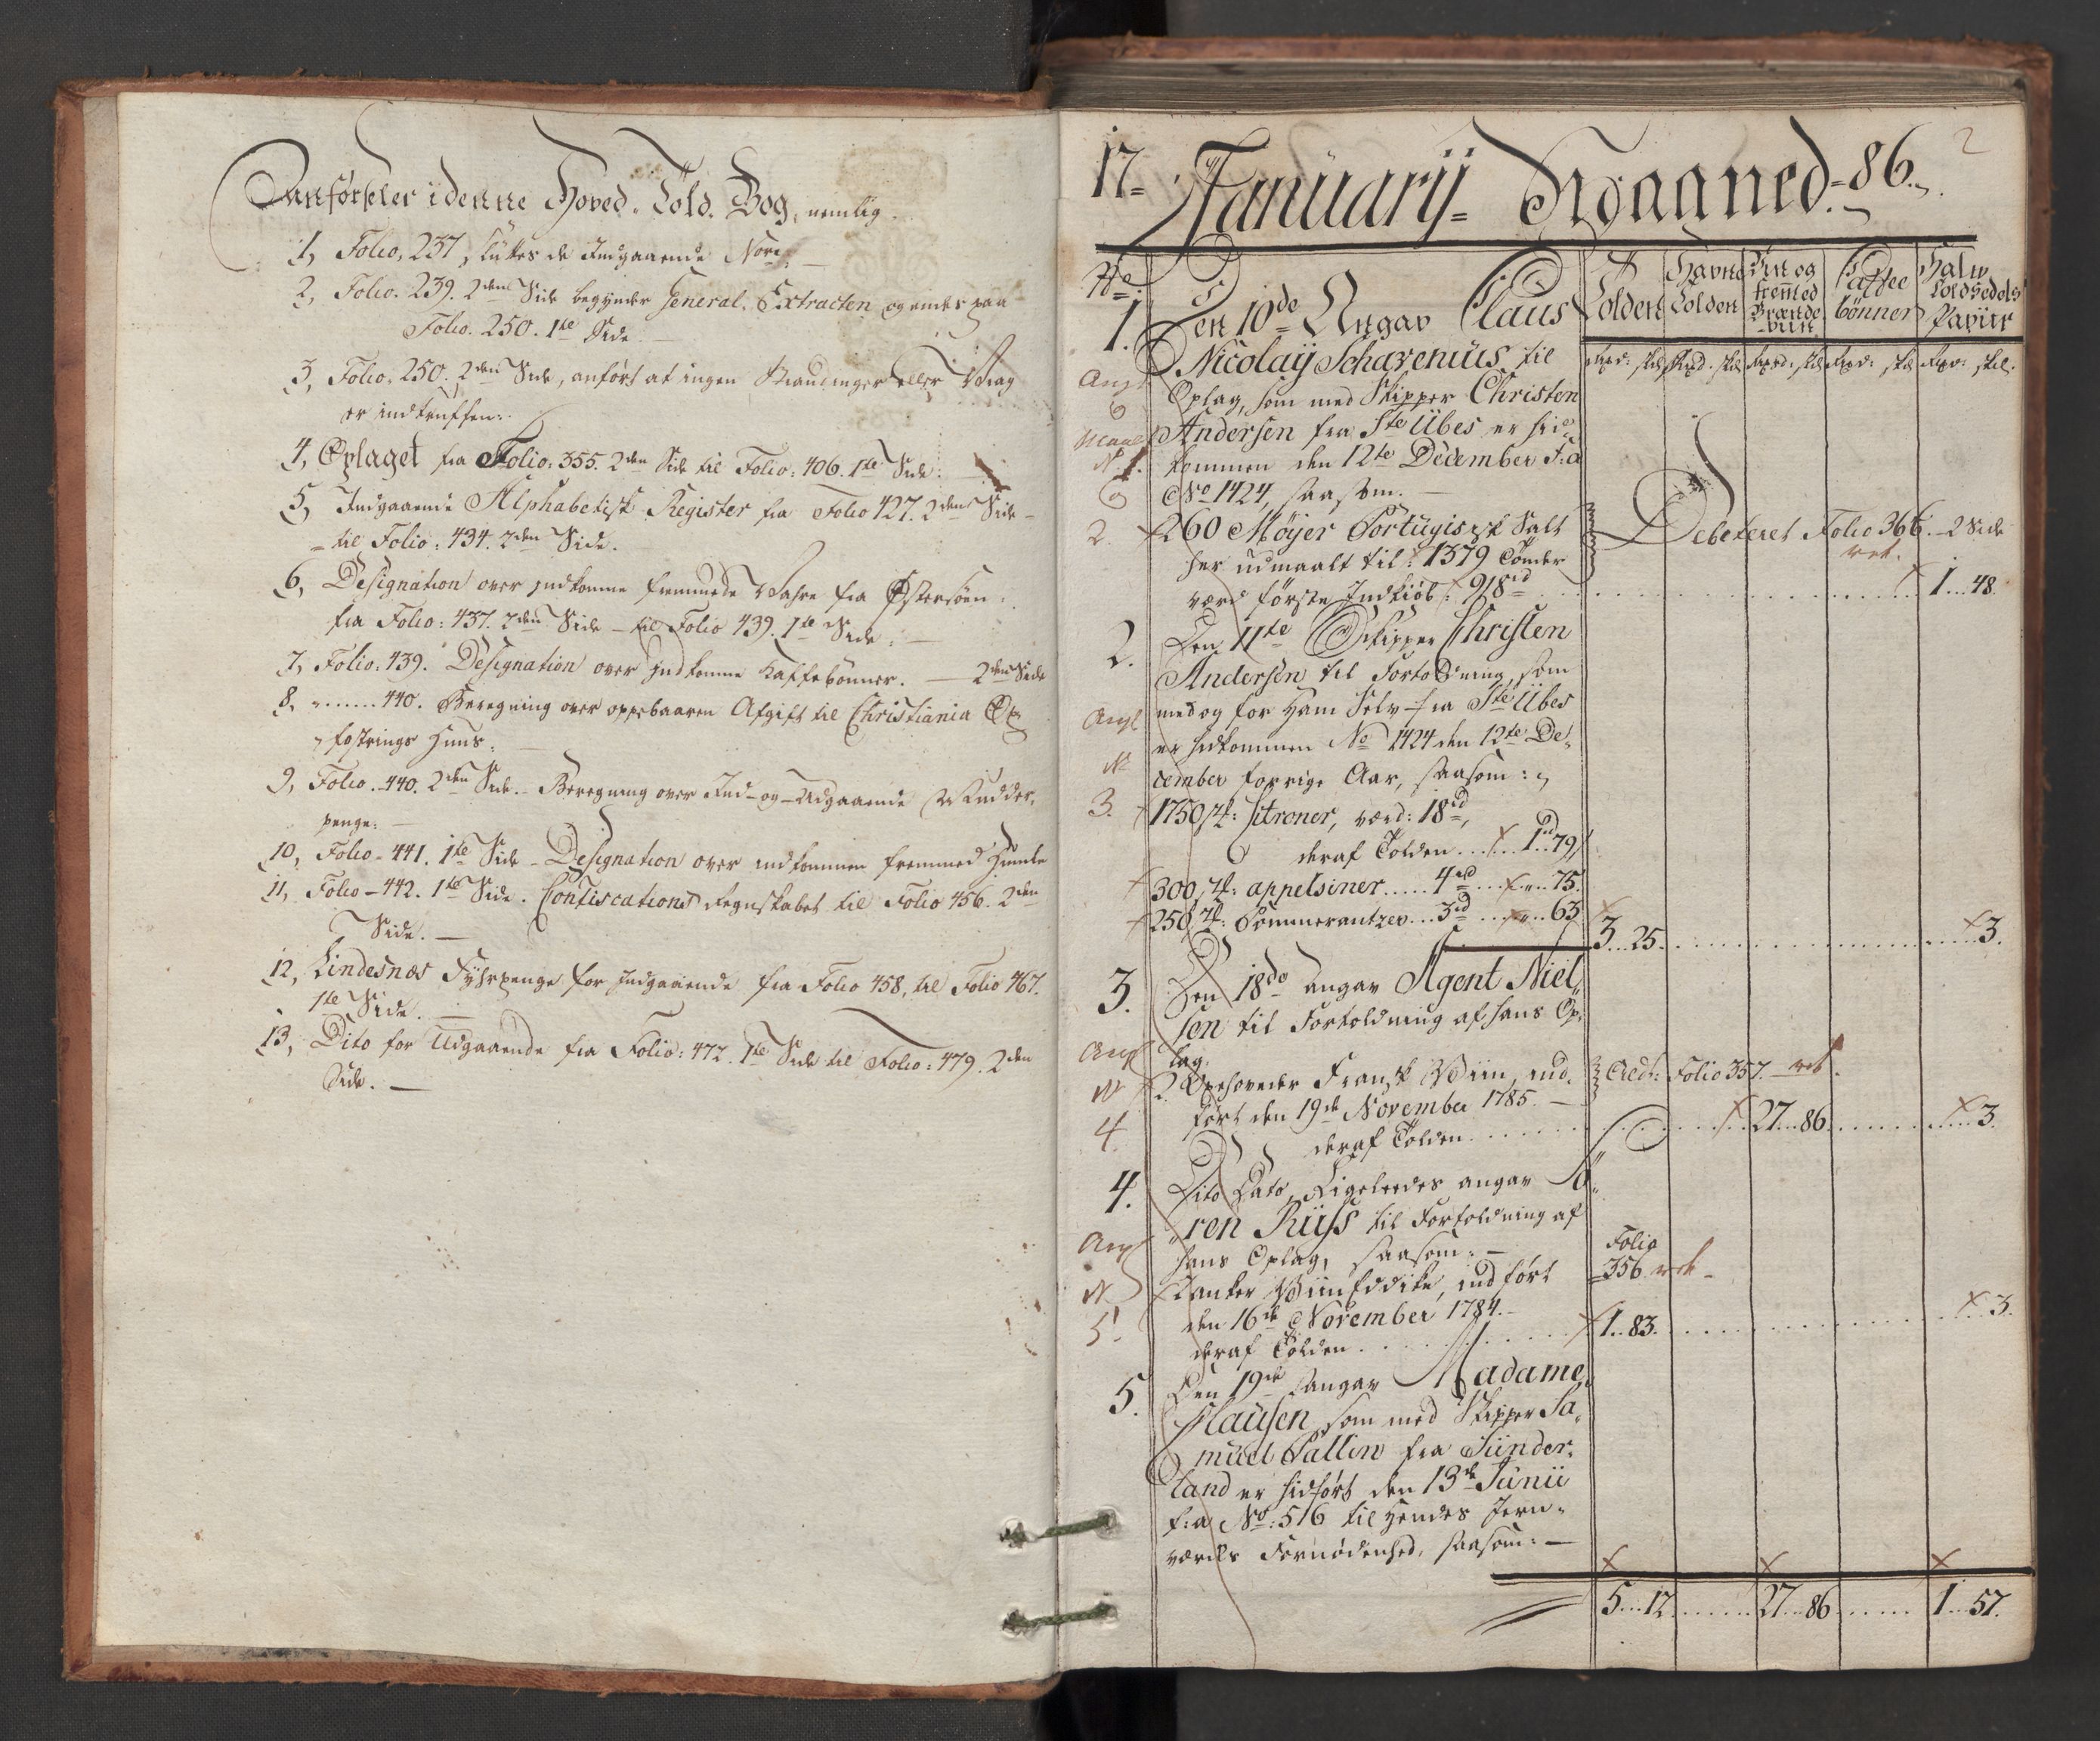 Anförseler i denne Hoved-Told-Bog, nemlig.
1, Folio, 237, sluttes de Indgaaende
2, Folio. 239. 2den Side begynder General-Extracten og endes paa
Folio. 250. 1te Side
3, Folio. 250. 2den Side, anfört at ingen Strandinger eller Vrag
er indtruffen.
4, Oplaget fra Folio: 355. 2den Side til Folio: 406. 1te Side.
5, Indgaaende Alphabetisk Register fra Folio 427. 2den Side
- til Folio: 434. 2den Side.
6, Designation over indkomne fremmede Vahre fra Østersöen
fra Folio: 437. 2den Side - til Folio 439. 1te Side.
7, Folio: 439. Designation over Indkomne Kaffebönner. 2den Side
8, " ...... 440. Beregning over oppebaaren Afgift til Christiania Op-
fostrings Huus.
9, Folio. 440. 2den Side. Beregning over Ind- og Udgaaende Mudder-
penge.
10, Folio - 441. 1te Side - Designation over indkommen fremmed Humle
11, Folio - 442. 1te Side. Confiscations Regnskabet til Folio 456. 2den
Side.
12, Lindesnæs Fyhrpenge for Indgaaende fra Folio 458, til Folio 467.
1te Side.
13, Dito for Udgaaende fra Folio: 472. 1te Side til Folio: 479. 2den
Side.
17 = Januarij = Maaned = 86. 2
No
Tolden
Havne Tolden
Viin og fremmed Brænde-viin
Caffee bönner
Halv Toldsedels Papiir
Rixd: skil Rixd: skil Rixd: skil Rixd: skil Rixd: skil.
1. Den 10de Angav Claus
Nicolaij Scharenius til
Oplag, som med Skipper Christen
Andersen fra Ste Übes er hid-
kommen den 12te December F: a
No 1424, saasom.
260 Möÿer Portugisisk Salt
her udmaalt til 1379 Tönder
værd förste Indkiöb: 918 rd
Debeteret Folio 366. - 2 Side
1 .. 48.
2. Den 11te Skipper Christen
Andersen til Fortoldning, som
med og for Ham Selv fra Ste Übes
er hidkommen No 1424 den 12te De-
cember forrige Aar, saasom:
1750 st: Citroner, værd: 18 rd,
deraf Tolden ... 1 .. 79
300, st: appelsiner ..... 4 rd ... " .. 75.
250, st: Pommerantzer ... 3 rd ... " .. 63
3 .. 25. 3.
3. Den 18de angav Agent Niel-
sen til Fortoldning af hans Op-
lag.
2 Oxehoveder Fransk Viin, ind-
fört den 19de November 1785.
deraf Tolden
Credt: Folio 357.
27 .. 86. 3.
4. Dito Dato, Ligeleedes angav Sö-
ren Rüss til Fortoldning af
hans Oplag, saasom:
Anker Viin Eddike, indfört
den 16de November 1784.
deraf Tolden
Folio
356
1 .. 83. 3.
5. Den 19de angav Madame
Clausen som med Skipper Sa-
muel Pallin fra Sünder-
land er hidfört den 13de Junii
f: a No: 516 til Hendes Jern-
værks Fornödenhed, saasom:
5 .. 12. 27 .. 86. 1 .. 57.